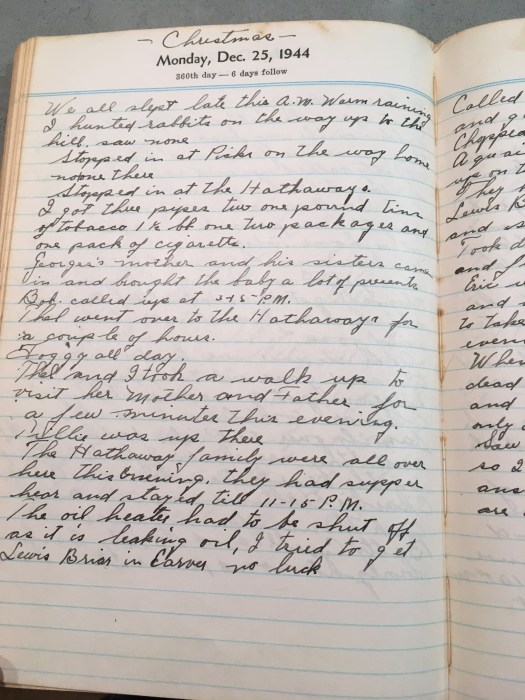 - Christmas -
Monday, Dec. 25, 1944
360th day — 6 days follow
We all slept late this A.M. Warm raining
I hunted rabbits on the way up to the
hill. saw none
Stopped in at Pikes on the way home
noone there
Stopped in at the Hathaways.
I got three pipes two one pound tins
of tobacco 1 ½ lb one two packages and
one pack of cigarette.
George's mother and his sisters came
in and bought the baby a lot of presents
Bob called up at 3+5- P.M.
Thel went over to the Hathaways for
a couple of hours.
Foggy all day.
Thel and I took a walk up to
visit her Mother and Father for
a few minutes this evening.
Millie was up there
The Hathaway family were all over
here this evening. they had supper
hear and stayed till 11-15 P.M.
The oil heater had to be shut off
as it is leaking oil, I tried to get
Lewis Briar in Carver no luck
Called
and g
Choppe
A quai
up on t
They
Lewis B
and s
Took d
and f
Eric
and
to take
even
When
dead
and
only
saw
so 2
ans
are